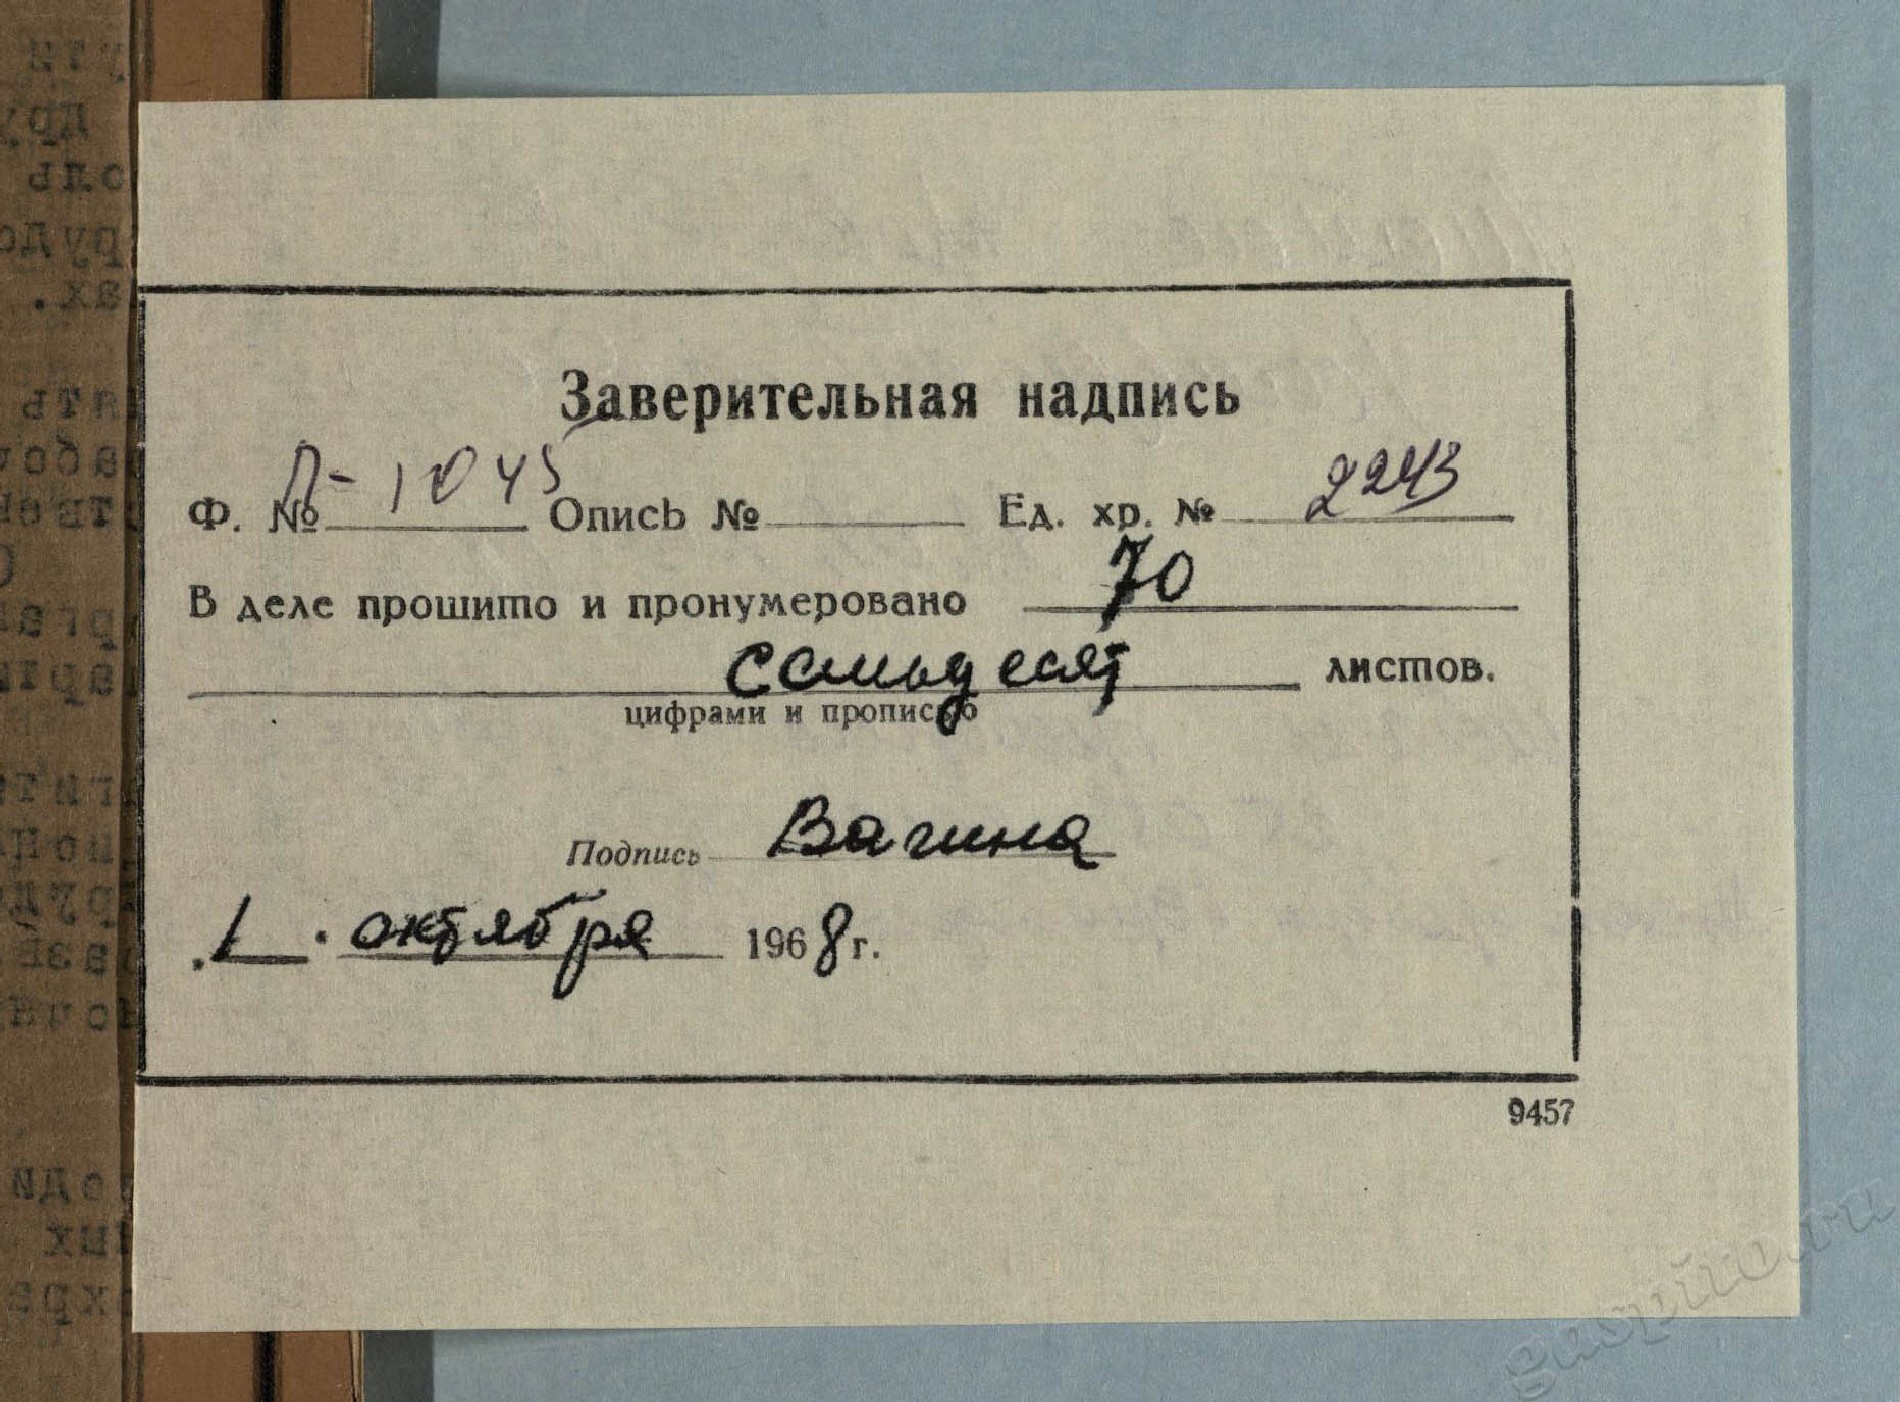 Заверительная надпись
Ф. № П-1045 Опись № Ед. хр. № 2243
В деле прошито и пронумеровано 70
семьдесят листов.
цифрами и прописью
Подпись Вагина
1. октября 1968 г.
9457
gaspiro.ru